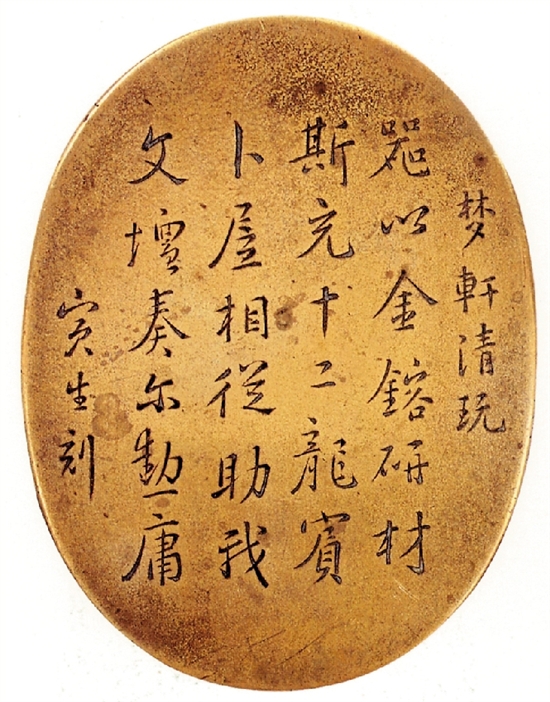 梦軒清玩
噐以金鎔研材
斯充十二龍賓
卜屋相從助我
文壇奏尔勲庸
寅生刻